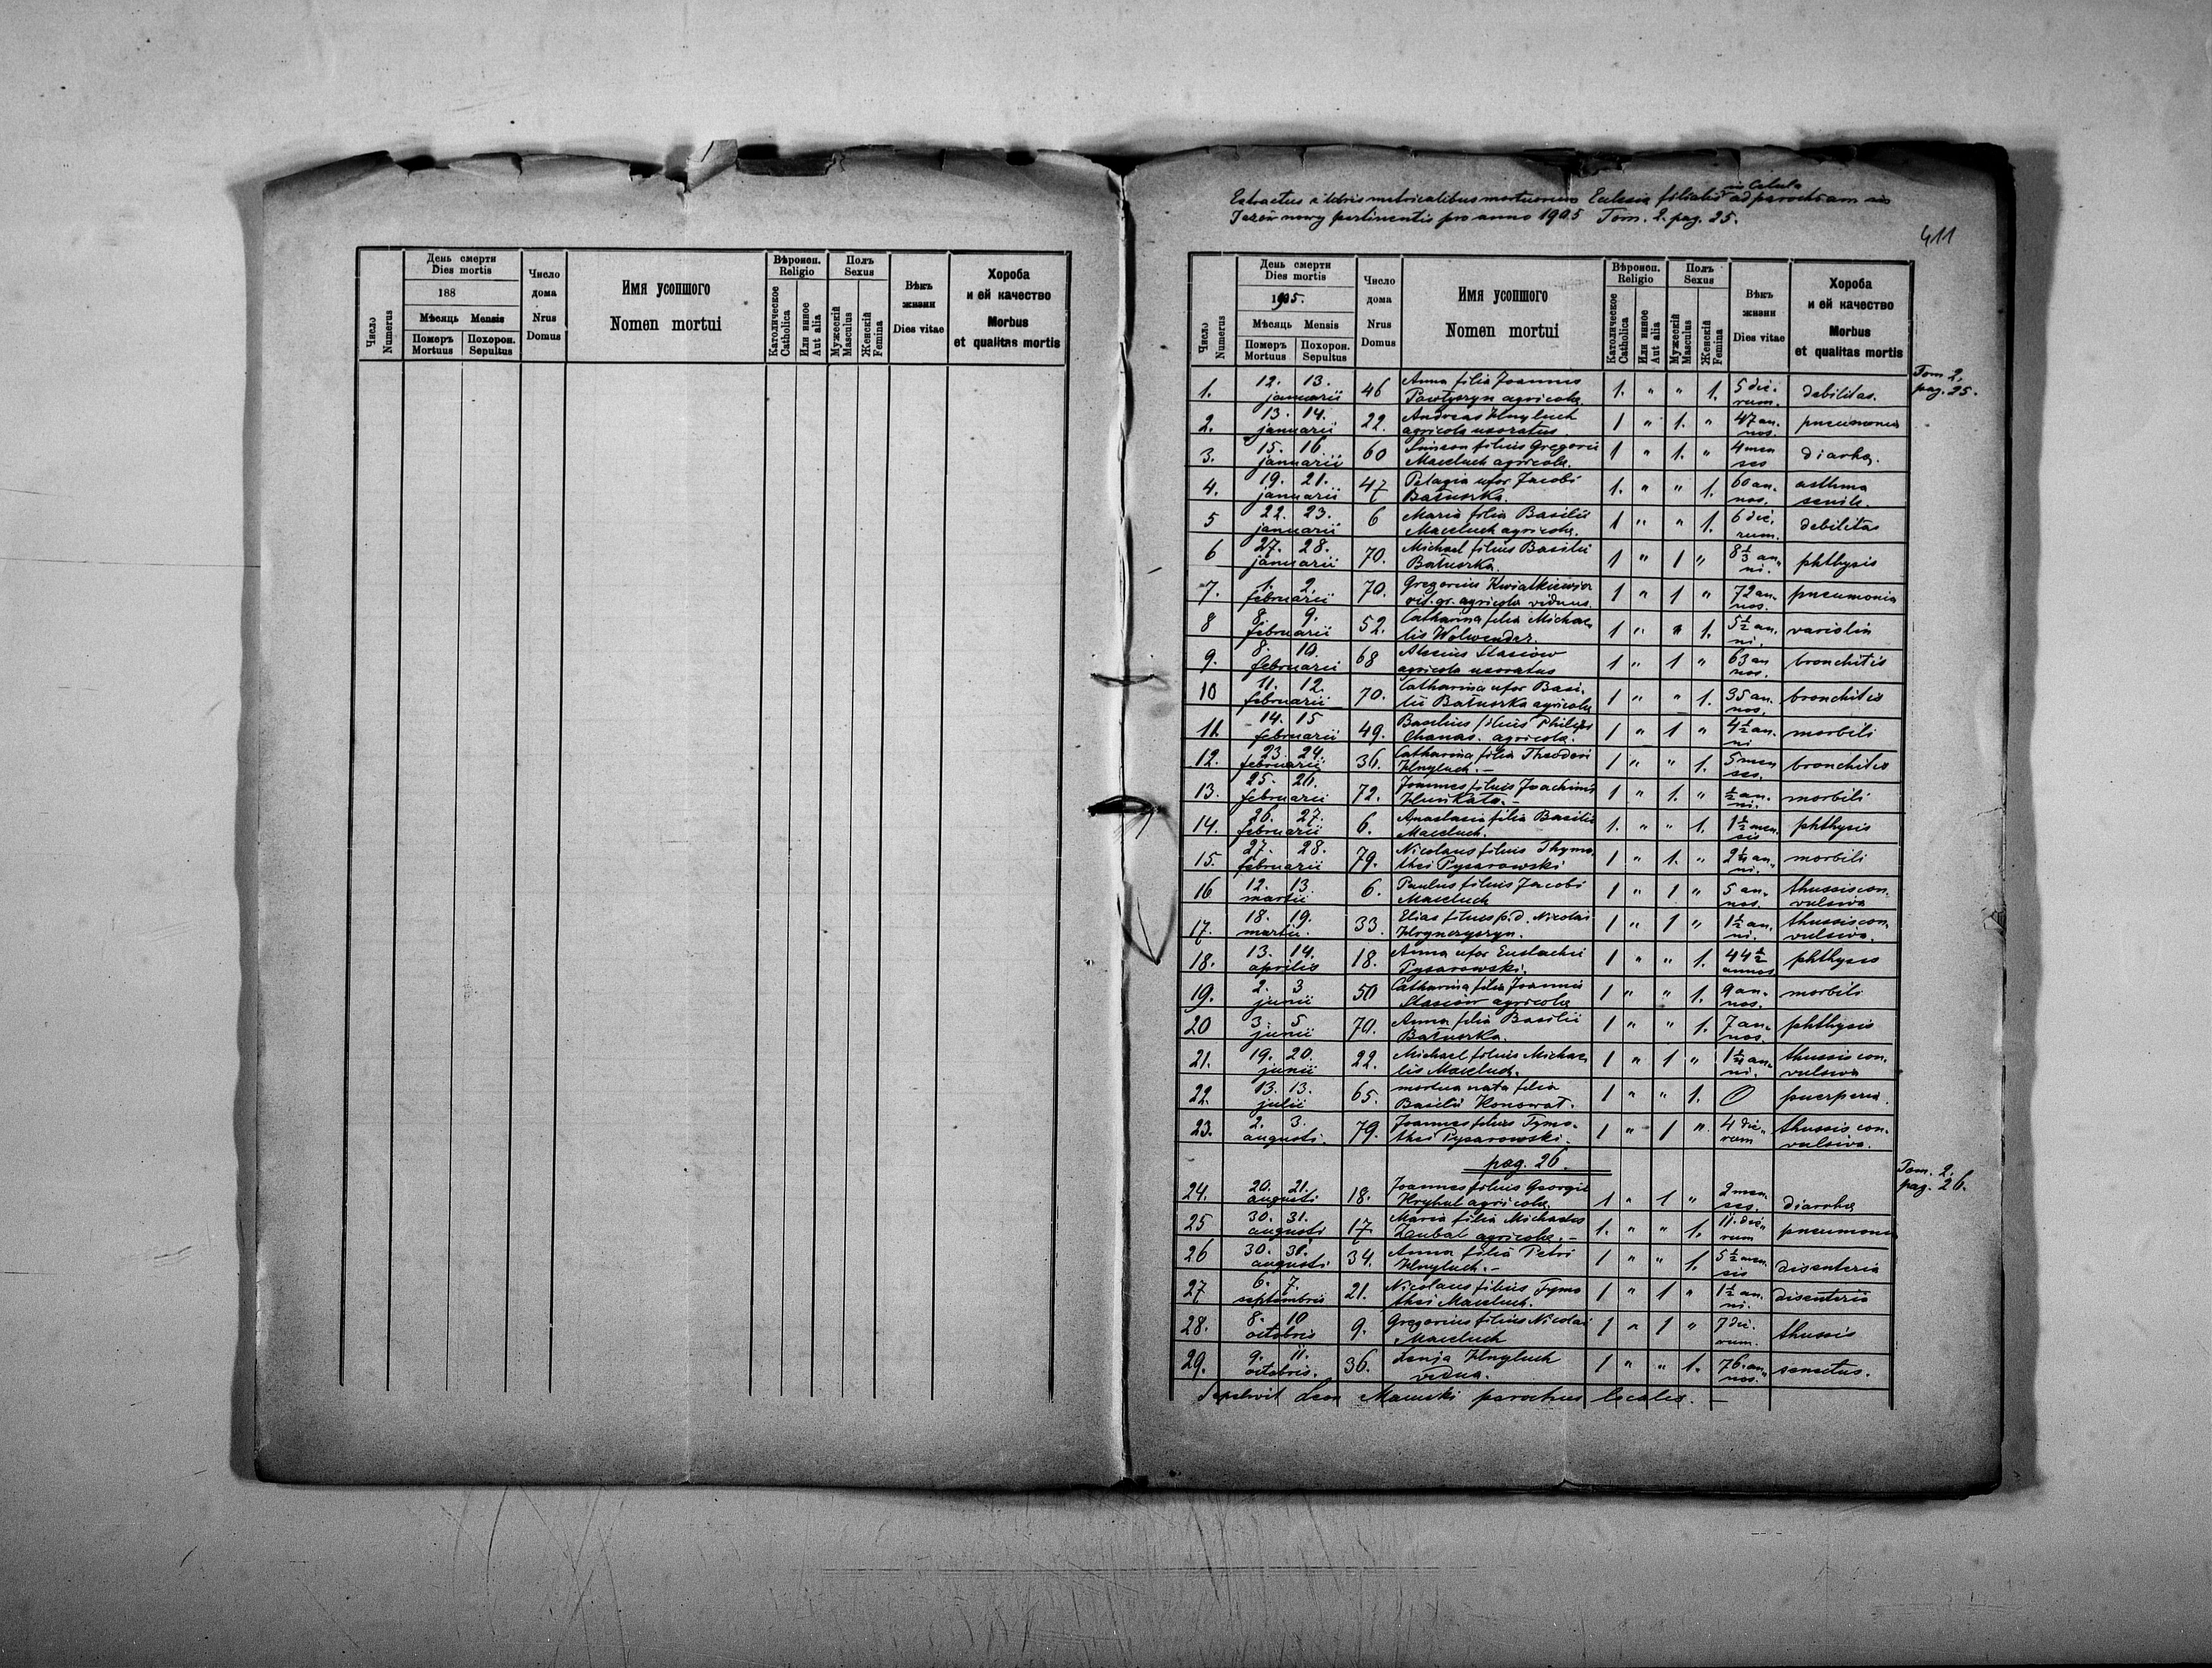 Число
Numerus
День смерти
Dies mortis
188
Мѣсяць Mensis
Померъ Mortuus
Похорон. Sepultus
Число дома
Nrus Domus
Имя усопшого
Nomen mortui
Вѣроисп.
Religio
Католическое Catholica
Или иное Aut alia
Полъ
Sexus
Мужескій Masculus
Женскій Femina
Вѣкъ жизни
Dies vitae
Хороба
и ей качество
Morbus
et qualitas mortis
Extractus e libris metricalibus mortuorum Eclesia filialis ad parochiam in
Jazów nowy pertinentis pro anno 1905 Tom. 2. pag. 25.
411
Число
Numerus
День смерти
Dies mortis
1905.
Мѣсяць Mensis
Померъ Mortuus
Похорон. Sepultus
Число дома
Nrus Domus
Имя усопшого
Nomen mortui
Вѣроисп.
Religio
Католическое Catholica
Или иное Aut alia
Полъ
Sexus
Мужескій Masculus
Женскій Femina
Вѣкъ жизни
Dies vitae
Хороба
и ей качество
Morbus
et qualitas mortis
Tom 2.
pag. 25.
1. 12. 13. januarii 46 Anna filia Joannis
Pawłyszyn agricola. 1. " " 1. 5 die-
rum. debilitas.
2. 13. 14. januarii 22. Andreas Hnyluch
agricola uxoratus 1 " 1. " 47 an-
nos. pneumonia
3. 15. 16 januarii 60 Simeon filius Gregorii
Maceluch agricola. 1 " 1. " 4 men
ses diarha.
4. 19. 21. januarii 47 Pelagia uxor Jacobi
Baťuszka. 1. " " 1. 60 an-
nos. asthma
senile.
5 22. 23. januarii 6 Maria filia Basilii
Maceluch agricola. 1 " " 1. 6 die-
rum. debilitas
6 27. 28. januarii 70. Michael filius Basilii
Baťuszka. 1 " 1 " 8 1/3 an-
ni. phthysis
7. 1. 2. februarii 70. Gregorius Kwiatkiewicz
rit. gr. agricola viduus. 1 " 1 " 72 an-
nos. pneumonia
8 8. 9. februarii 52. Catharina filia Michae-
lis Wolwender. 1 " " 1. 5 1/2 an-
ni. variolia
9. 8. 10. februarii 68 Alexius Stasiow
agricola uxoratus 1 " 1 " 63 an
nos. bronchitis
10 11. 12. februarii 70. Catharina uxor Basi-
lii Baťuszka agricola 1 " " 1. 35 an-
nos. bronchitis
11. 14. 15 februarii 49. Basilius filius Philippi
Chanas. agricola. 1 " 1 " 4 1/2 an-
ni morbili
12. 23. 24. februarii 36. Catharina filia Theodori
Hnyluch. – 1 " " 1. 5 men
ses. bronchitis
13. 25. 26. februarii 72. Joannes filius Joachimi
– 1 " 1. " 1/2 an-
ni. morbili
14. 26. 27. februarii 6. Anastasia filia Basilii
Maceluch. 1. " " 1. 1 1/2 men-
sis phthysis
15. 27. 28. februarii 79. Nicolaus filius Thymo-
thei Pysarowski 1 " 1. " 2 1/4 an-
ni. morbili
16 12. 13. martii 6. Paulus filius Jacobi
Maceluch 1 " 1 " 5 an-
nos. thussis con-
vulsiva
17. 18. 19. martii. 33. Elias filius p.d. Nicolai
Hrynczyszyn. 1 " 1 " 1 1/2 an-
ni. thussis con-
vulsiva.
18. 13. 14. aprilis 18. Anna uxor Eustachii
Pysarowski. 1 " " 1. 44 1/2
annos phthysis
19. 2. 3 junii 50 Catharina filia Joannis
Stasiow agricola 1 " " 1. 9 an-
nos. morbili
20 3. 5. junii 70. Anna filia Basilii
Baťuszka. 1 " " 1. 7 an-
nos. phthysis
21. 19. 20. junii 22. Michael filius Michae-
lis Maceluch. 1 " 1 " 1 1/4 an-
ni. thussis con-
vulsiva
22. 13. 13. julii 65. mortua nata filia
Basilii Konował. 1 " " 1. 0 puerperia.
23. 2. 3. augusti. 79. Joannes filius Tymo-
thei Pysarowski. 1 " 1 " 4 die-
rum thussis con-
vulsiva.
pag. 26.
Tom. 2.
pag. 26.
24. 20. 21. augusti 18. Joannes filius Georgii
Hryhul agricola. 1 " 1 " 2 men-
ses. diarrha
25 30. 31. augusti 17 Maria filia Michaelis
Zaubal agricola. – 1. " " 1. 11. die-
rum pneumonia
26 30. 31. augusti 34. Anna filia Petri
Hnyluch. – 1 " " 1. 5 1/2 men-
sis disenteria
27 6. 7. septembris 21. Nicolaus filius Tymo
thei Maceluch. 1 " 1 " 1 1/2 an.
ni. disenteria
28. 8. 10 octobris 9. Gregorius filius Nicolai
Maceluch 1 " 1 " 7 die-
rum. thussis
29. 9. 11. octobris. 36. Hnyluch
vidua. 1 " " 1. 76. an-
nos. senectus.
Sepelivit Leon parochus localis. –